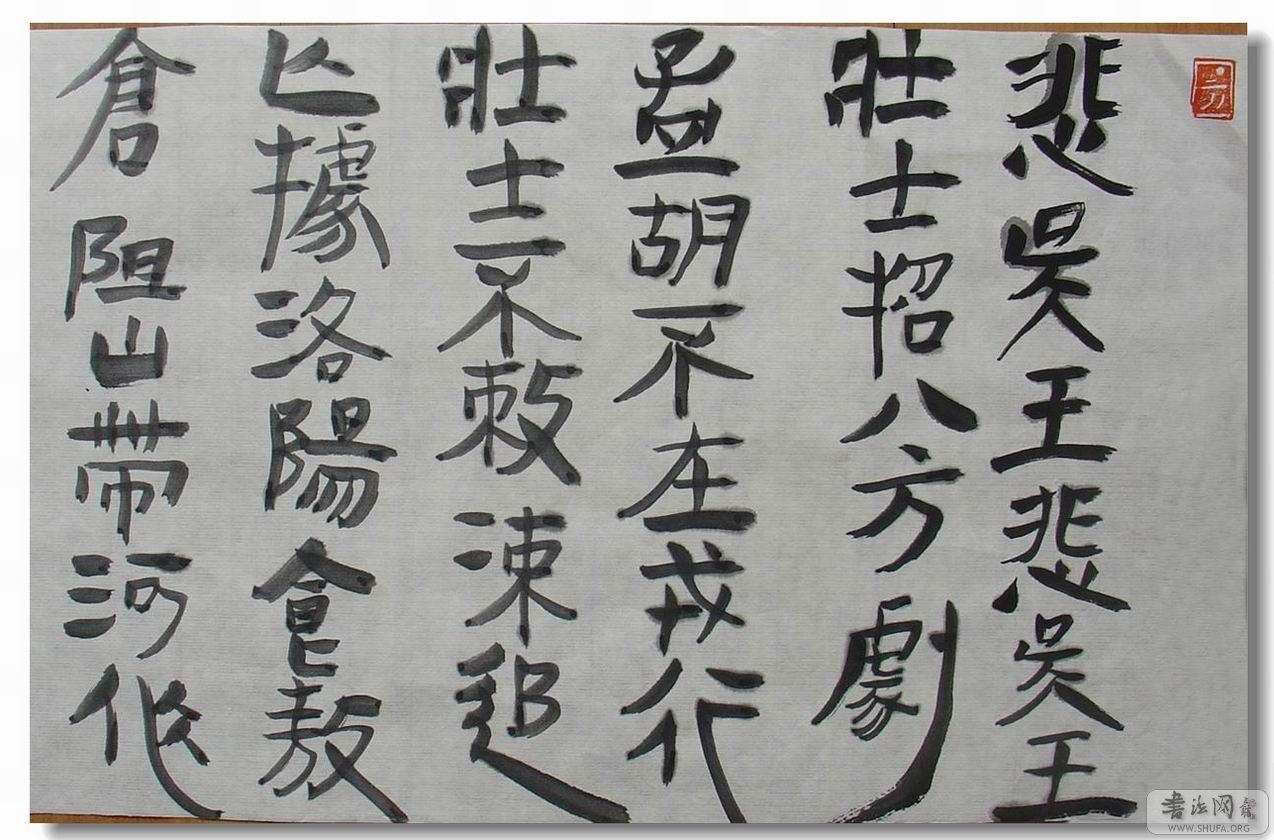 悲吳王悲吳王
壯士招八方劇
孟胡不在戎行
壯士不敕涑
亾據洛陽食敖
倉阻山帶河
书法网
WWW.SHUFA.ORG